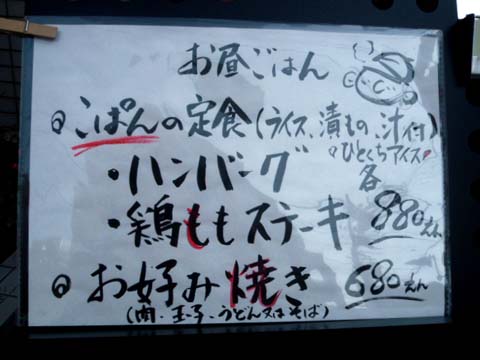 お昼ごはん
こぱんの定食(ライス、漬もの、汁付)
ひとくちアイス
・ハンバーグ 各
・鶏ももステーキ 880えん
お好み焼き 680えん
(肉・玉子・うどん又はそば)